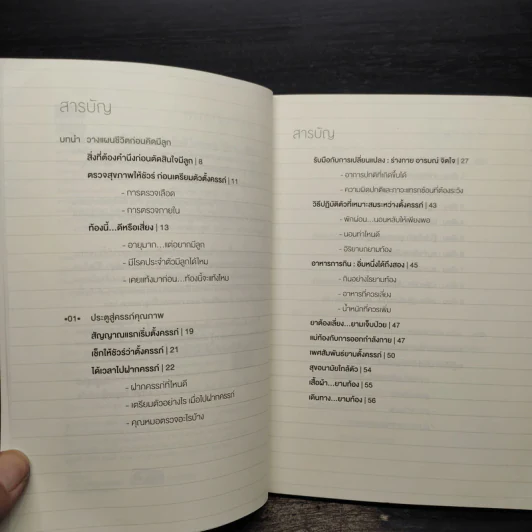 สารบัญ
บทนำ วางแผนชีวิตก่อนคิดมีลูก
สิ่งที่ต้องคำนึงก่อนตัดสินใจมีลูก | 8
ตรวจสุขภาพให้ชัวร์ ก่อนเตรียมตัวตั้งครรภ์ | 11
- การตรวจเลือด
- การตรวจภายใน
ท้องนี้...ดีหรือเสี่ยง | 13
- อายุมาก...แต่อยากมีลูก
- มีโรคประจำตัวมีลูกได้ไหม
- เคยแท้งมาก่อน...ท้องนี้จะแท้งไหม
•01• ประตูสู่ครรภ์คุณภาพ
สัญญาณแรกเริ่มตั้งครรภ์ | 19
เช็กให้ชัวร์ว่าตั้งครรภ์ | 21
ได้เวลาไปฝากครรภ์ | 22
- ฝากครรภ์ที่ไหนดี
- เตรียมตัวอย่างไร เมื่อไปฝากครรภ์
- คุณหมอตรวจอะไรบ้าง
สารบัญ
รับมือกับการเปลี่ยนแปลง : ร่างกาย อารมณ์ จิตใจ | 27
- อาการปกติที่เกิดขึ้นได้
- ความผิดปกติและภาวะแทรกซ้อนที่ต้องระวัง
วิธีปฏิบัติตัวที่เหมาะสมระหว่างตั้งครรภ์ | 43
- พักผ่อน...นอนหลับให้เพียงพอ
- นอนท่าไหนดี
- อิริยาบถยามท้อง
อาหารการกิน : อิ่มหนึ่งได้ถึงสอง | 45
- กินอย่างไรยามท้อง
- อาหารที่ควรเลี่ยง
- น้ำหนักที่ควรเพิ่ม
ยาต้องเลี่ยง...ยามเจ็บป่วย | 47
แม่ท้องกับการออกกำลังกาย | 47
เพศสัมพันธ์ยามตั้งครรภ์ | 50
สุขอนามัยใกล้ตัว | 54
เสื้อผ้า...ยามท้อง | 55
เดินทาง...ยามท้อง | 56